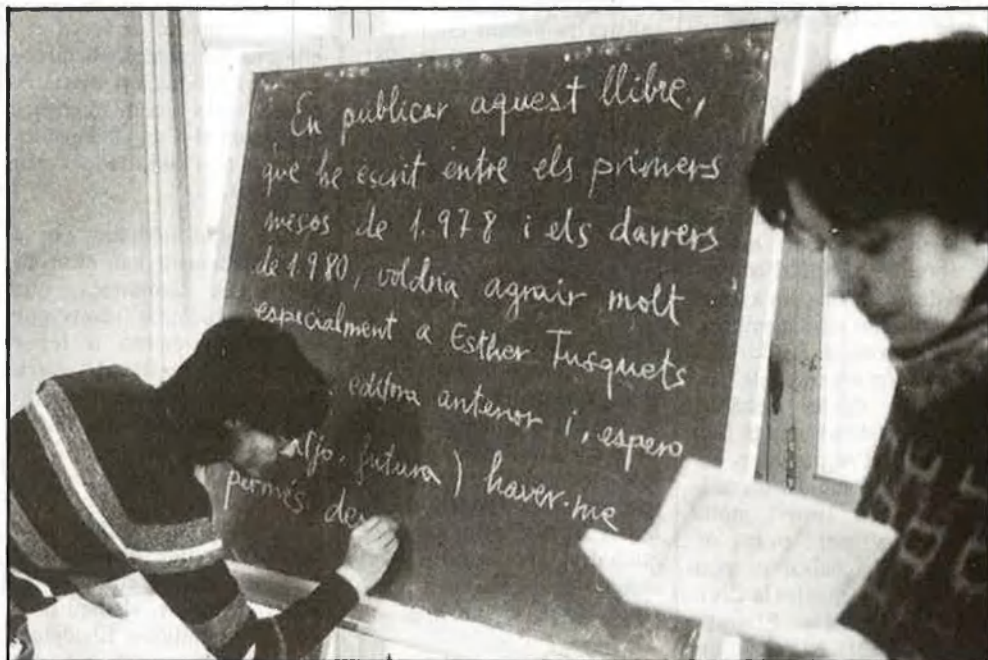 En publicar aquest llibre,
que he escrit entre els primers
mesos de 1.978 i els darrers
de 1.980, voldria agrair molt
especialment a Esther Tusquets
editora anterior i, espero
futura) haver-me
permés des